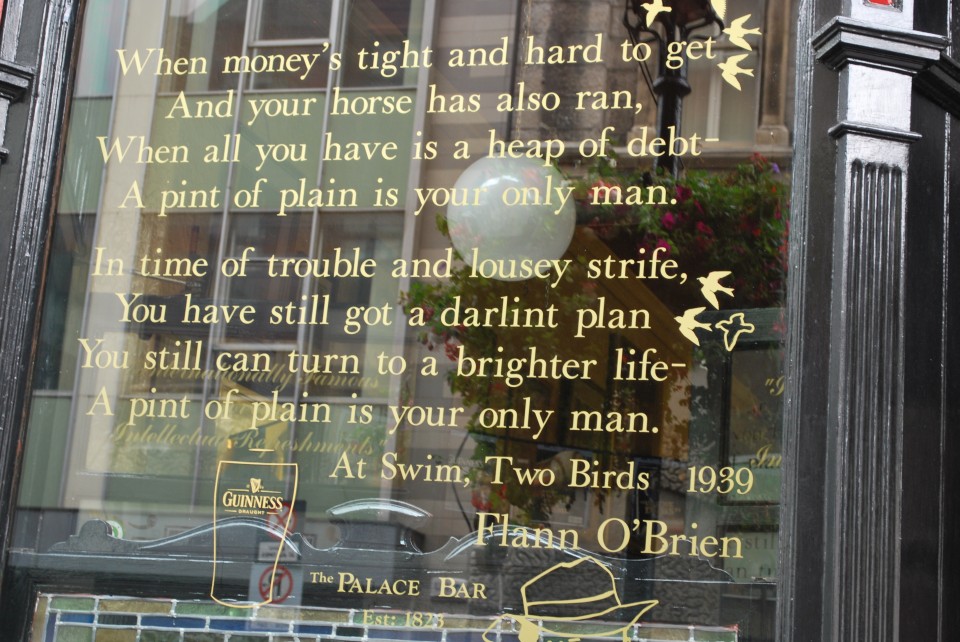 When money's tight and hard to get
And your horse has also ran,
When all you have is a heap of debt-
A pint of plain is your only man.
In time of trouble and lousey strife,
You have still got a darlint plan
You still can turn to a brighter life-
A pint of plain is your only man.
At Swim, Two Birds 1939
Flann O'Brien
GUINNESS
DRAUGHT
The PALACE BAR
Est: 1823
Internationally Famous
Intellectual Refreshments"